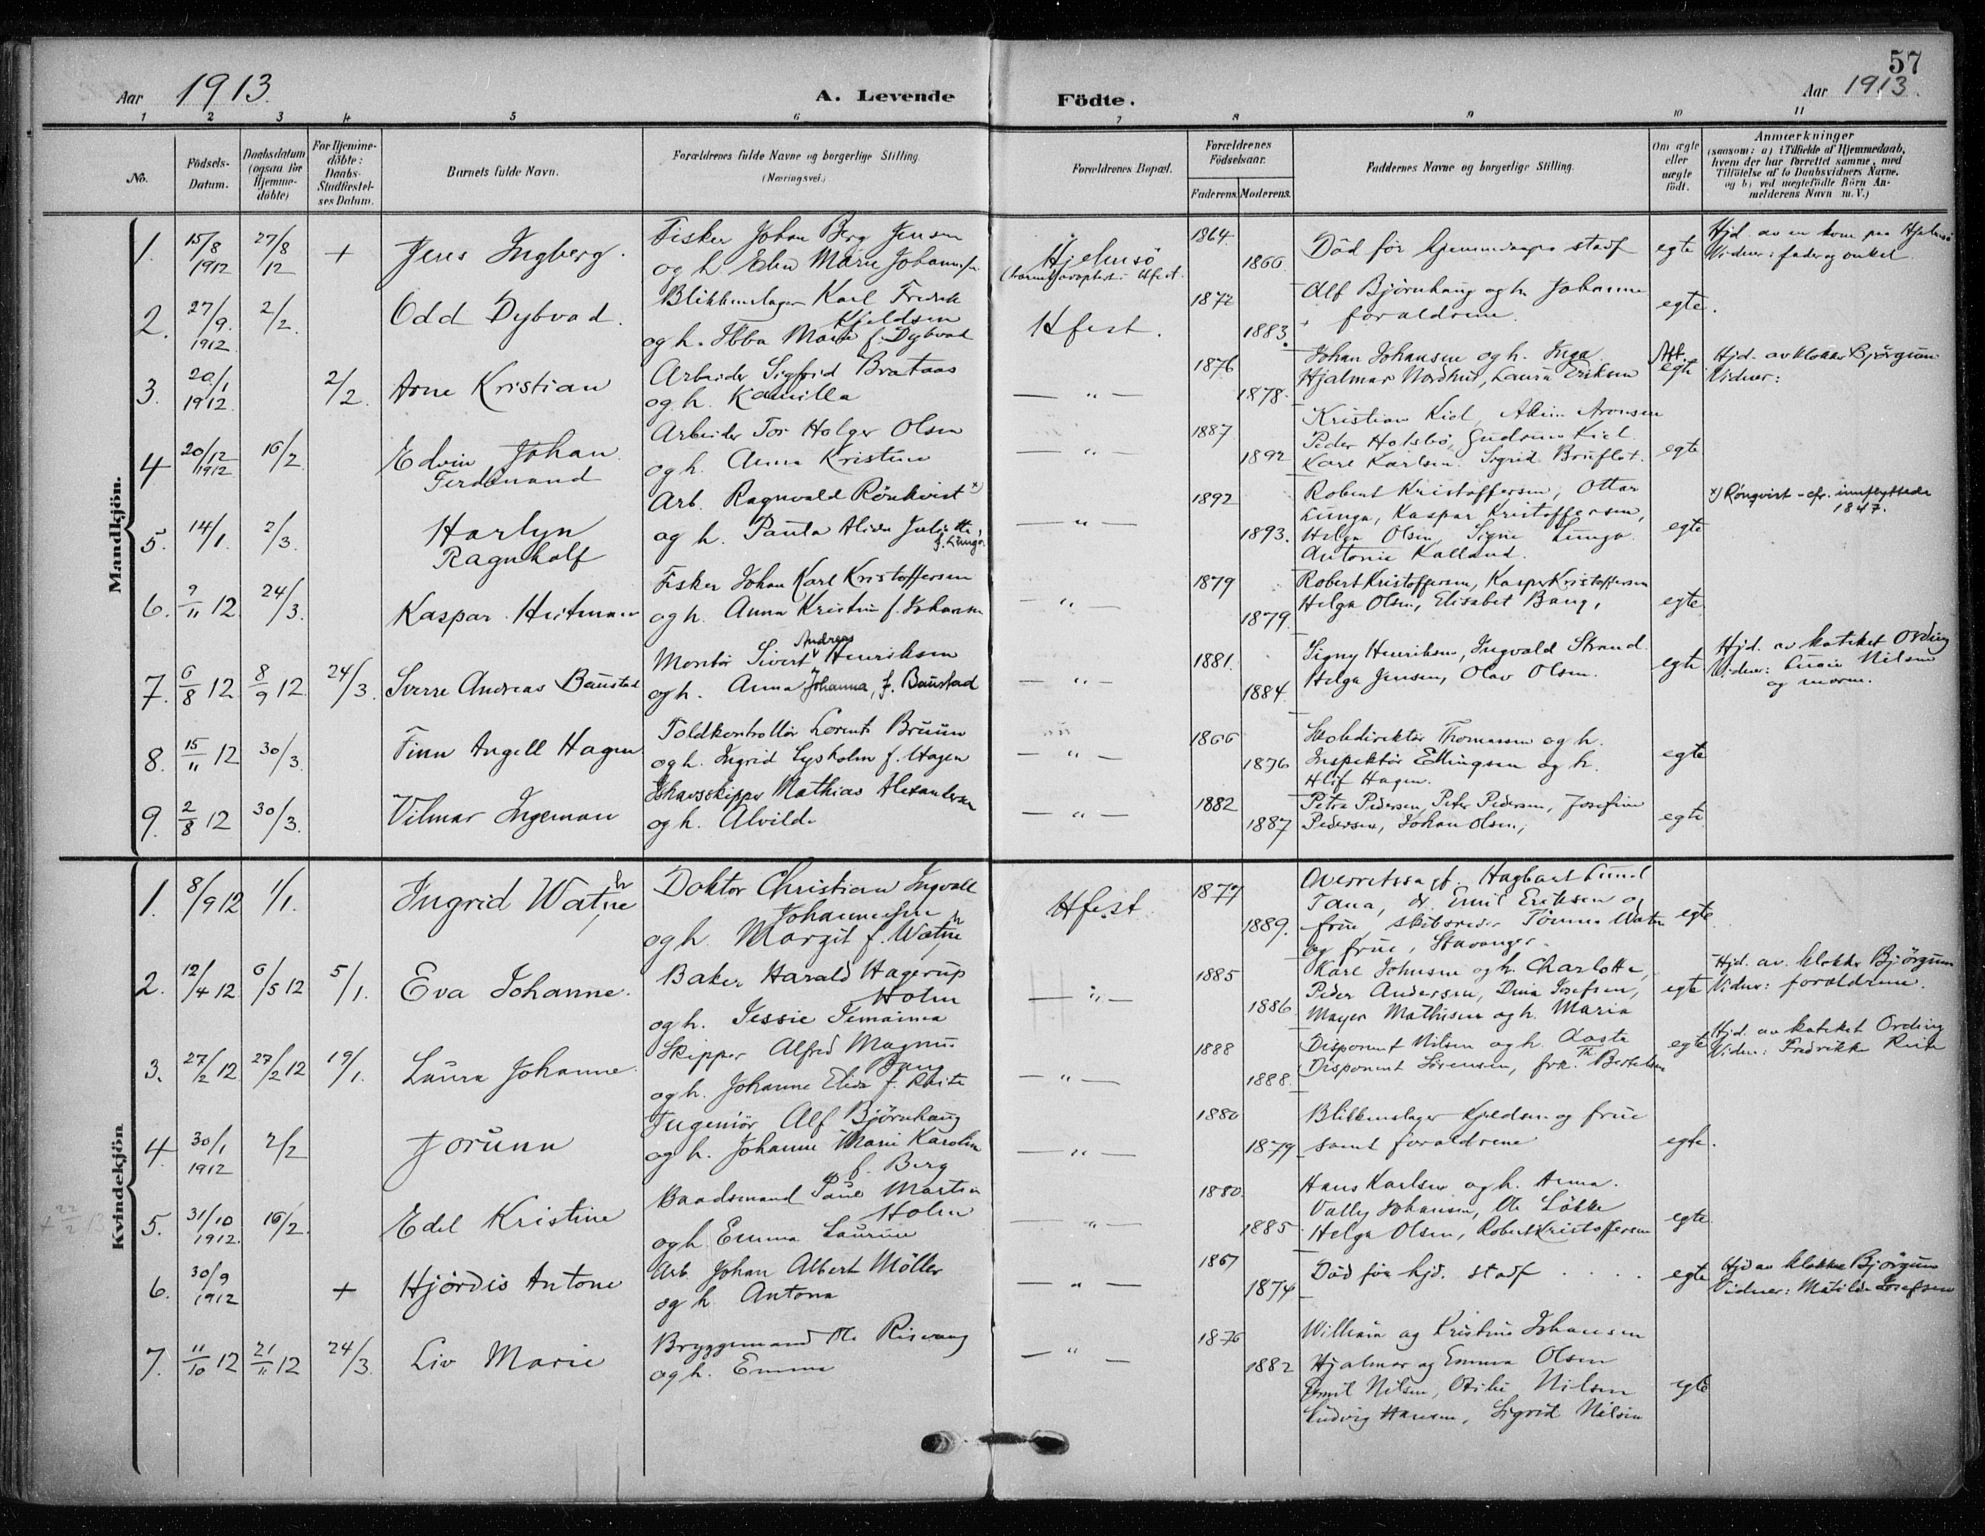 57
Aar 1913.
A. Levende
Födte.
Aar 1913.
1 2 3 4 5 6 7 8 9 10 11
No.
Födsels-Datum.
Daabsdatum (ogsaa for Hjemme-döbte)
For Hjemme-döbte: Daabs-Stadfæstel-ses Datum.
Barnets fulde Navn.
Forældrenes fulde Navne og borgerlige Stilling. (Næringsvei.)
Forældrenes Bopæl.
Forældrenes Födselsaar.
Faderens. Moderens.
Faddernes Navne og borgerlige Stilling.
Om ægte eller uægte født.
Anmærkninger
(saasom: a) i Tilfælde af Hjemmedaab,
hvem der har forrettet samme, med
Tilföielse af to Daabsvidners Navne.
og b) ved uegtefödte Börn An-
melderens Navn m. V.)
Mandkjön.
1. 15/8 1912 27/8 12 + Jens Ingberg.
Fisker Johan Berg Jensen
og h. Elen Marie
Hjelmsö
1864. 1866
Död før hjemmedaapens stadf egte
Hjd. av en kone paa Hjelmsö
Vidner: fader og onkel
2. 27/9. 1912 2/2. Odd Dybvad.
Blikkenslager Karl Fredrik
Kjeldsen
og h. Ebba Marie f. Dybvad
Hfest.
1872 1883.
Alf Bjørnhaug og h. Johanne
foraldrene.
egte.
3. 20/1 1912 2/2. Arne Kristian
Arbeider Sigfrid Brataas
og h. Kamilla
— " —
1876 1878.
Johan Johansen og h. Inga.
Hjalmar Nordhus, Laura Eriksen
egte
Hjd. av klokker Bjørgum
Vidner:
4 20/12 1912 16/2. Edvin Johan
Ferdinand
Arbeider Tor Holger Olsen
og h. Anna Kristine
— " —
1887 1892
Kristian Kiel, Aronsen
Peder Holsbö, Gudrun Kiel
Karl Karlsen. Sigrid Bruflot.
egte
5. 14/1. 2/3. Harlyn
Ragnhalf
Arb. Ragnvald Rönkvist x)
og h. Paula Alida Juliette
f. Lunga.
— " —
1892 1893.
Robert Kristoffersen, Ottar
Lunga, Kaspar Kristoffersen,
Helga Olsen, Signe Lunga.
Antonie Kalland.
egte
x) Rønqvist - cfr. innflyttede
1847.
6. 9/11 12 24/3. Kaspar Hartman
Fisker Johan Karl Kristoffersen
og h. Anna Kristine f. Johansen
— " —
1879 1879.
Robert Kristoffersen, Kasper Kristoffersen
Helga Olsen, Elisabet Bang,
egte
7. 6/8 12 8/9 12 24/3. Sverre Andreas Baustad
Andreas
Montör Sivert Henriksen
og h. Anna Johanna, f. Baustad
— " —
1881. 1884
Signy Henriksen, Ingvald Strand
Helga Jensen, Olav Olsen.
egte
Hjd. av kateket Ording
Vidner: Nilsen
og moren.
8. 15/11 12 30/3. Finn Angell Hagen
Toldkontrollör Lorents Bruun
og h. Ingrid Lysholm f. Hagen
— " —
1866 1876
Skoledirektör Thomassen og h.
Inspektör Ellingsen og h.
Hlif Hagen.
egte
9. 2/8 12 30/3. Vilmar Ingeman
Ishavsskipper Mathias Alexandersen
og h. Alvilde
— " —
1882 1887
Petra Pedersen, Peter Pedersen, Josefine
Pedersen, Johan Olsen,
egte
Kvindekjön
1. 8/9 12 1/1. Ingrid Watne
Doktor Christian Ingvald
Johannessen
og h. Margit f. Watne
Hfest.
1877 1889.
Overretssagf. Hagbart Lund
Tana, dr. Emil Eriksen og
frue, skibsreder Tönnes Watne
og frue, Stavanger.
egte
2. 12/4 12 6/5 12 5/1. Eva Johanne.
Baker Harald Hagerup
Holm
og h. Jessie Jemaima
— " —
1885 1886
Karl Johnsen og h. Charlotte,
Peder Andersen, Dina Josefsen,
Mayer Mathisen og h. Maria
egte
Hjd. av. klokker Bjørgum
Vidner: foraldrene.
3. 27/2 12 27/2 12 19/1. Laura Johanne.
Skipper Alfred Magnus
Bang
og h. Johanne Elida f. Reite
— " —
1888 1888.
Disponent Nilsen og h. Aasta
Disponent Sörensen, frk. Th. Bertelsen
egte
Hjd. av kateket Ording
Vidner: Fredrikke Reite
4. 30/1 1912 2/2 Jorunn
Ingeniör Alf Björnhaug
og h. Johanne Marie Karoline
f. Berg
— " —
1880 1879
Blikkenslager Kjeldsen og frue
samt foraldrene
egte.
+ 22/2 13
5. 31/10 1912. 16/2. Edel Kristine
Baadsmand Paul Martin
Holm
og h. Emma Laurine
— " —
1880. 1885
Hans Karlsen og h. Anna.
Vally Johansen, Ole Løkke
Helga Olsen, Robert Kristoffersen
egte
6. 30/9 1912 + Hjördis Antone
Arb. Johan Albert Möller
og h. Antona
— " —
1867 1874
Död før hjd. stadf. . . . egte
Hjd av klokker Bjørgum
Vidner: Matilde Josefsen
7. 11/10 12 21/11 12 24/3. Liv Marie
Bryggemand Ole Risvaag
og h. Emma
— " —
1876 1882
William og Kristine Johansen
Hjalmar og Emma Olsen
Emil Nilsen, Otilie Nilsen
Ludvig Hansen, Sigrid Nilsen
egte